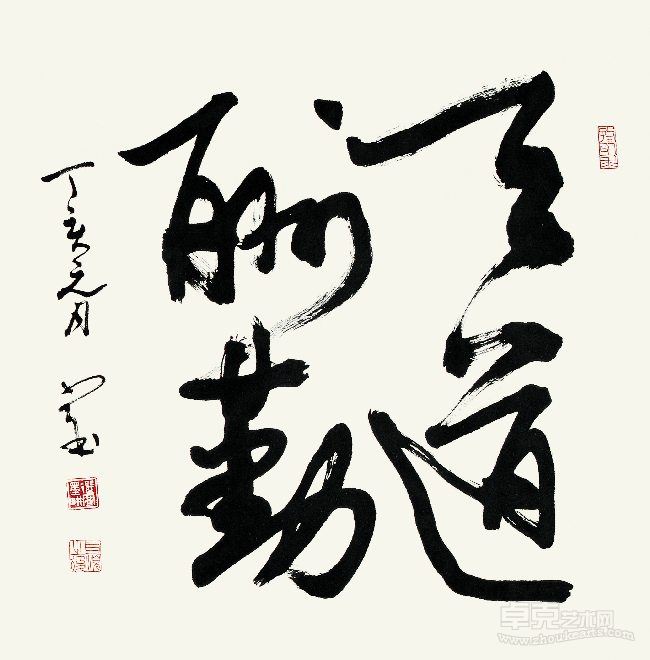 天道
酬勤
丁亥元月
卓克艺术网
www.zhoukearts.com